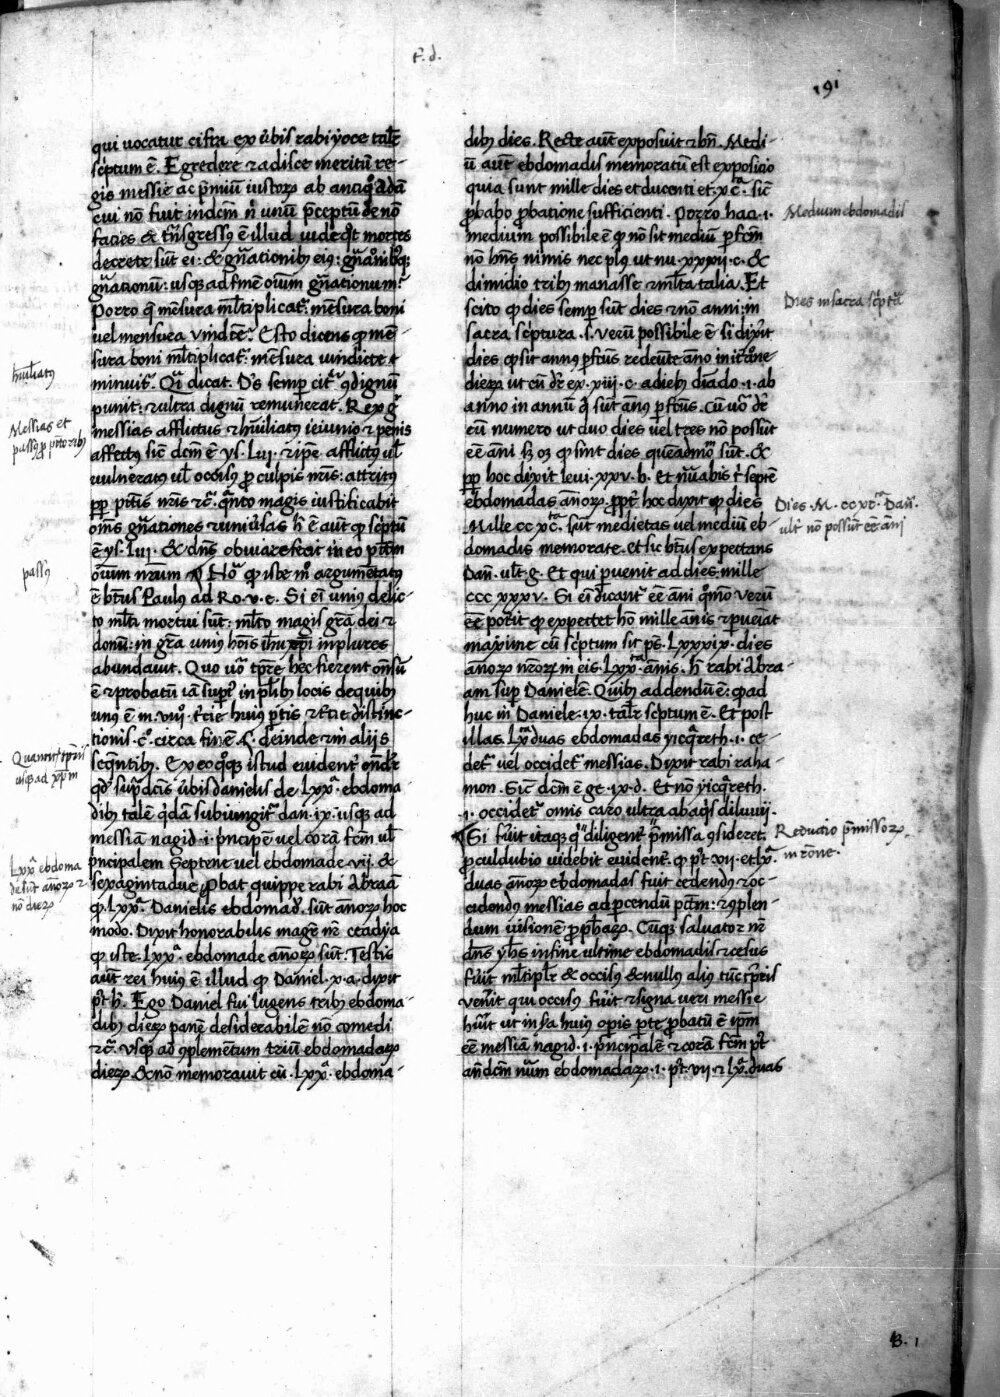 f. d.
191
qui uocatur cifra ex ubis rabi yoce talr̄
sc̄ptum ē. Egredere ⁊ adisce meritū re-
gis messie ac p̄miū iustoꝝ ab antiq̊ adā
cui nō fuit indcm̄ nī unū p̄ceptū de nō
facies & tn̄sgressꝰ ē illud uide qt̊ mortes
decrete sūt ei: & gn̄ationibꝫ eiꝰ: gn̄ationibꝫqꝫ
gn̄ationū: usqꝫ ad finē oīum gn̄ationum?
Porro q̄ mēsura ml̄tiplicat᷑: mēsura boni
uel mensura vindcē᷑. Esto dicens ꝙ mē-
sura boni ml̄tiplicat᷑: mēsura uindicte ⁊
minuit᷑. Q̄i dicat. Dꝰs semp̄ cit᷑ ꝯdignū
punit: ⁊ ultra dignū remunerat. Rex gͦ
messias afflictus ⁊ hūiliatꝰ ieiunio ⁊ penis
affectꝰ sic̄ dcm̄ ē ys. Lui. ⁊ ip̄e afflictꝰ ul̄
uulneratꝰ ul̄ occisꝰ ꝓ culpis nr̄is: attritꝰ
ꝓp̄ pctīs nr̄is ⁊c̄. q̄nto magis iustificabit
oms̄ gn̄ationes ⁊ uniūsas h̄ ē aut̄ ꝙ sc̄ptū
ē ys. Lui. & dn̄s obuiare fecit in eo pctm̄
oīum nr̄um ¶ Hōꝝ ꝙ iste mō argumētatꝰ
ē btūs Paulꝰ ad Ro. v. c. Si eī uniꝰ delic-
to ml̄ti mortui sūt: ml̄to magis gr̄a dei ⁊
donū: in gr̄a uniꝰ hoīs ih̄u xp̄i in plures
abundauit. Quo uͦ tp̄re hec fierent om̄sū
ē ⁊ probatū iā sup᷑ in pl̄ibꝫ locis de quibꝫ
unꝰ ē in. viijͦ. t̄cie huiꝰ p̄tis ⁊ t̄cie distinc-
tionis. cͦ. circa finē. s. deinde ⁊ in aliis
seq̄ntibꝫ. Ex eo qͦqꝫ istud euident᷑ ondr̄
qd̓ sup̄dcīs ūbis danielis de Lxxᵃ. ebdoma-
dibꝫ talē q̊dā subiungit᷑ dan. ix. usqꝫ ad
messiā nagid. i. p̄ncipē uel corā fcm̄ ul̄
p̄ncipalem Septene uel ebdomade. vij. &
sexagintadue ꝓbat quippe rabi abraā
ꝙ. Lxxᵃ. Danielis ebdomaď. sūt annoꝝ hoc
modo. Dixit honorabilis mag̃r nr̄ ceadya
ꝙ iste. Lxxᵃ. ebdomade annoꝝ sūt. Testis
aūt rei huiꝰ ē illud ꝙ Daniel. x. a. dixit
pt̊ h̄. Ego Daniel fui lugens tribꝫ ebdoma-
dibꝫ dieꝝ panē desiderabilē nō comedi
⁊c̄. usqꝫ ad ꝯplemētum triū ebdomadaꝝ
dieꝝ. & nō memorauit cū. Lxxᵃ. ebdoma-
hūiliatꝰ
Messias et
passꝰ ꝓ pctōribꝫ
passꝰ
usqꝫ ad xp̄m
Lxxᵃ ebdoma
de sūt annoꝝ ⁊
nō dieꝝ
dibꝫ dies. Recte aut̄ exposuit ⁊ bn̄. Medi-
ū aut̄ ebdomadis memoratū est expositio
quia sunt mille dies et ducenti et. xcᵗᵃ. sic̄
ꝓbabo ꝓbatione sufficienti. Porro haci. i.
medium possibile ē ꝙ nō sit mediū ꝑfcm̄
nō hn̄s nimis nec plꝰ ut nu. xxxij. c. &
dimidio tribꝫ manasse ⁊ ml̄ta talia. Et
scito ꝙ dies semp̄ sūt dies ⁊ nō anni: in
sacra sc̄ptura. s. verū possibile ē si dix̄it
dies ꝙ sit annꝰ ꝑfctūs redeūte āno in it̄atōne
dieꝝ ut cū dr̄ ex. xiij. c. a diebꝫ diado. i. ab
anno in annū q̄ sūt anꝰ ꝑfctūs. Cū uͦ dr̄
cū numero ut duo dies uel tres nō possūt
eē āni sꝫ oꝫ ꝙ sint dies quēadmō sūt. &
ꝓp̄ hoc dixit leui. xxv. b. Et nūabis tͥ septē
ebdomadas annoꝝ. ꝓpt̄ hoc dixit ꝙ dies
Mille cc xcᵗᵃ. sūt medietas uel mediū eb-
domadis memorate. et sic btūs expectans
Dan̄. ult̄. g. Et qui ꝑuenit ad dies. mille
ccc xxxv. Si eī dicant᷑ eē ani qͦmō verū
eē poīt ꝙ expectet hō mille ānis ⁊ ꝑueīat
maxime cū sc̄ptum sit ps̄. Lxxxix. dies
annoꝝ nr̄oꝝ in eis. Lxxᵗᵃ. ānis. h̄ rabi abra-
am sup̄ Danielē. Quibꝫ addendū ē: ꝙ ad
huc in Daniele. ix. talr̄ sc̄ptum ē. Et post
illas. Lxᵗᵃ duas ebdomadas yicq̄reth. i. ce-
det᷑ uel occidet᷑ messias. Dixit rabi raha-
mon. Sic̄ dcm̄ ē gē. ix. d. Et nō yicq̄reth.
i. occidet᷑ omīs caro ultra ab aqͥs diluuij.
¶ Si fūit itaqꝫ qͥs diligent᷑ p̄missa ꝯsideret.
ꝓculdubio uidebit euident᷑. ꝙ pt̊. vij. et Lxᵃ.
duas annoꝝ ebdomadas fuit cedendꝰ ⁊ oc-
cidendꝰ messias ad ꝑcendū pctm̄: ⁊ ꝯplen-
dum uisionē ꝓph̄aꝝ. Cūqꝫ saluator nr̄
dn̄s yh̄s in fine ultime ebdomadis ⁊ cesus
fūit ml̄tiplr̄ & occisꝰ & nullꝰ aliꝰ tūc tp̄ris
venīt qui occisꝰ fūit ⁊ signa ueri messie
hūit ut in iᵃ huiꝰ opīs pte ꝓbatū ē ip̄m
eē messiā nagid. i. p̄ncipalē ⁊ corā fcm̄ pt̊
an̄dcm̄ nūm ebdomadaꝝ. i. pt̊. vij. ⁊ Lxᵃ. duas
Medium ebdomadis
Dies in sacra sc̄ptᵃ
Dies. M. cc xcᵗᵃ Dan̄.
ult̄ nō possūt eē āni
Reductio p̄missoꝝ
B. 1